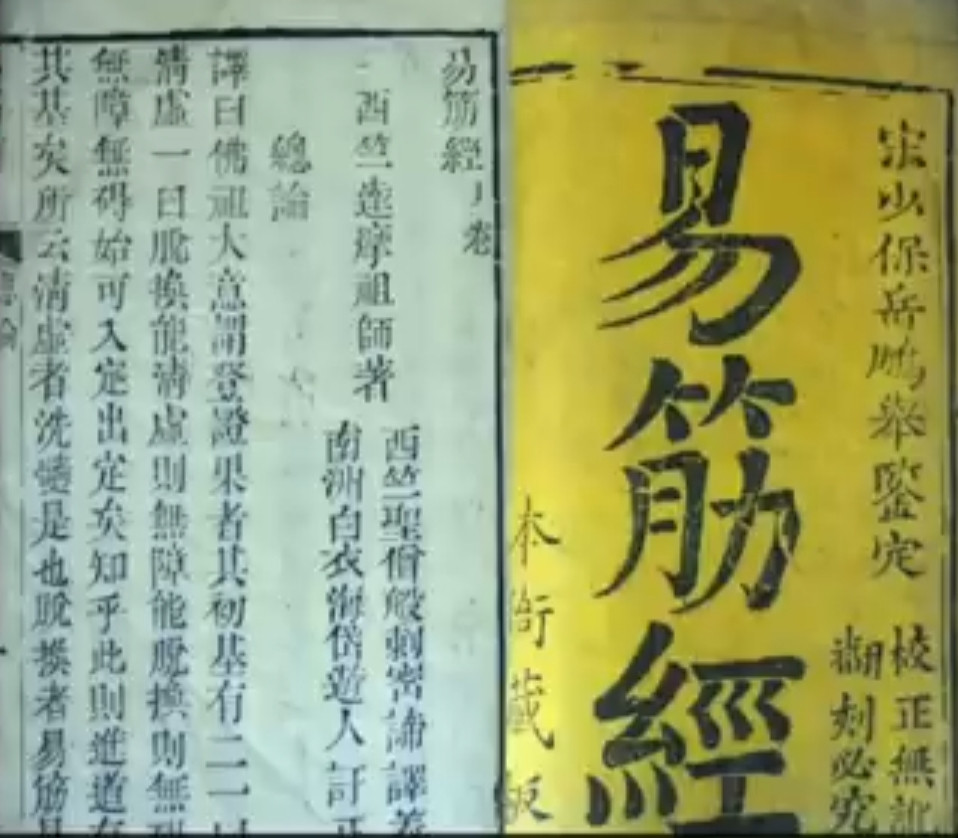 宋少保岳鵬舉鑒定
校正無訛
翻刻必究
易筋經
本衙藏板
易筋經上卷
西竺達摩祖師著
西竺聖僧般剌密諦譯義
南洲白衣海岱遊人訂正
總論
譯曰佛祖大意謂登證果者其初基有二一曰
清虛一曰脫換能清虛則無障能脫換則無礙
無障無碍始可入定出定矣知乎此則進道有
其基矣所云清虛者洗髓是也脫換者易筋是